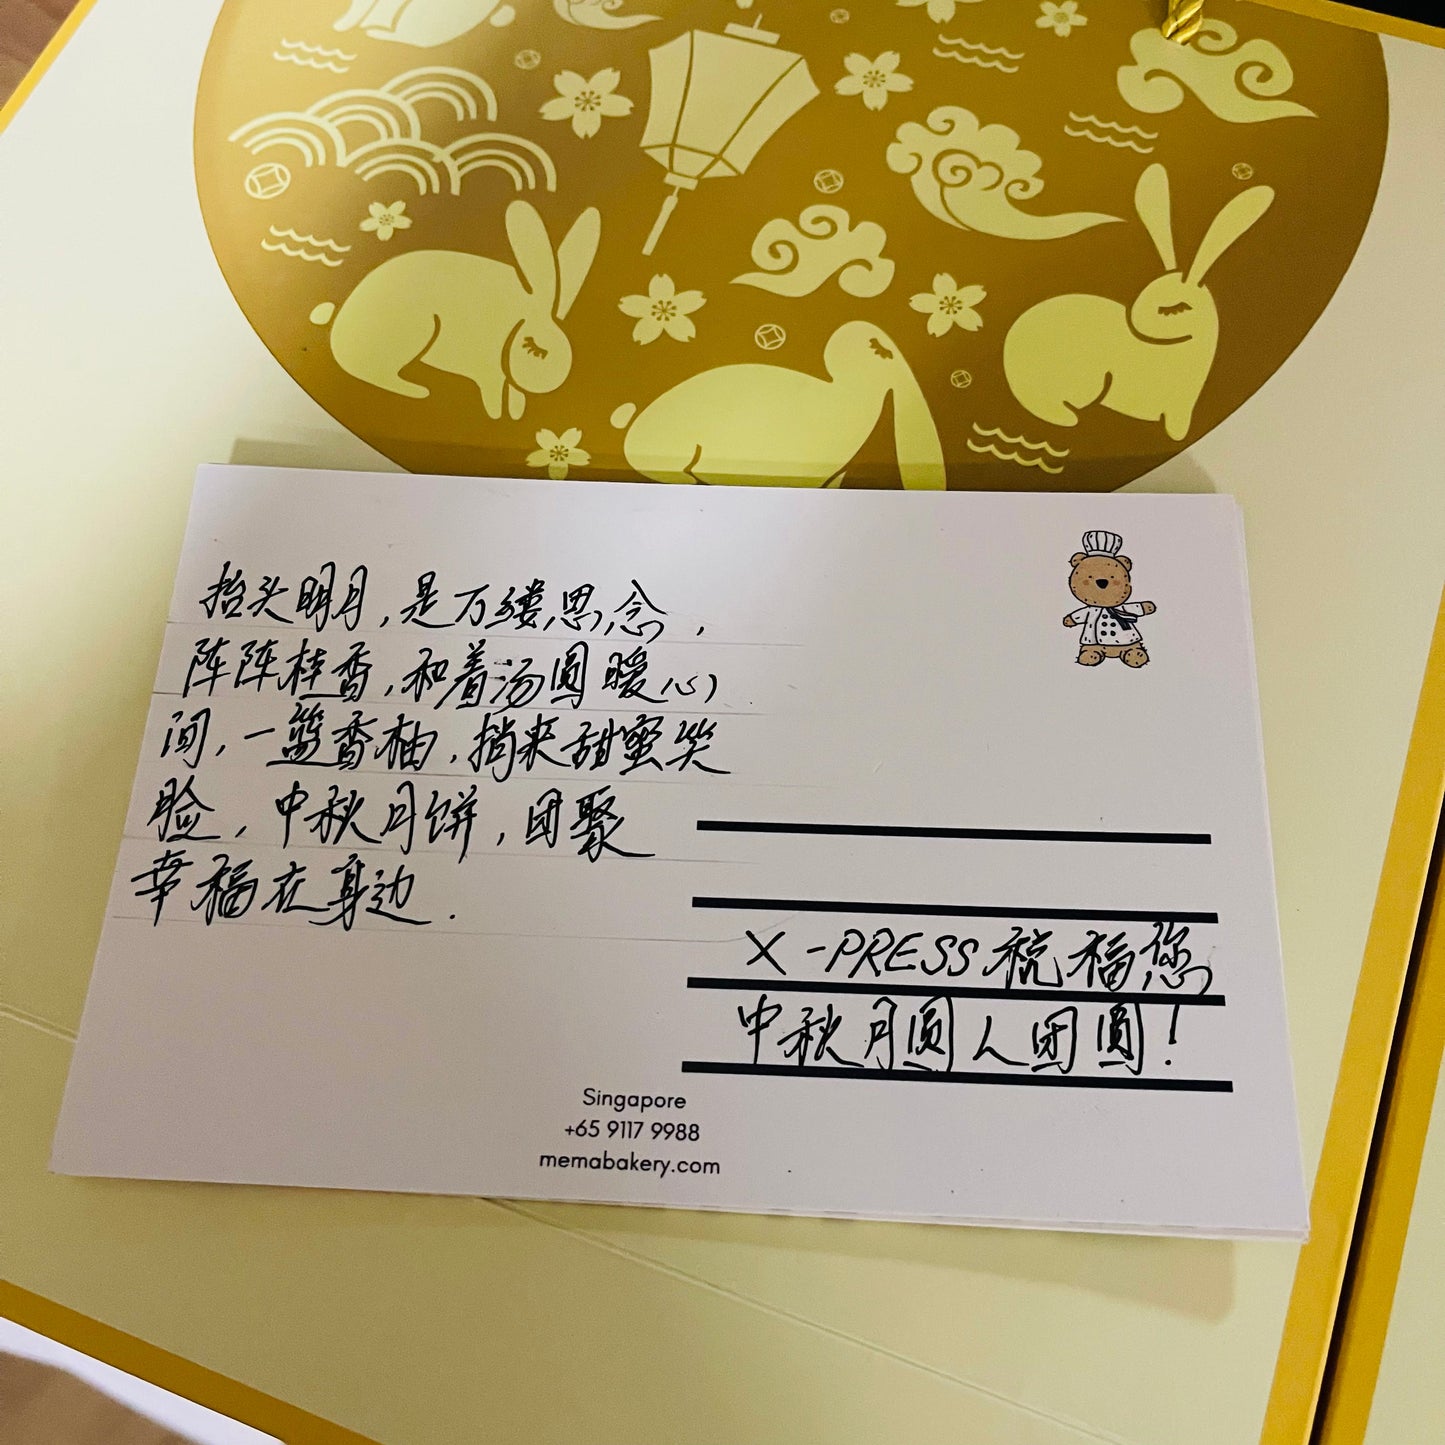 抬头明月,是万缕思念,
阵阵桂香,和着汤圆暖心
间,一篮香柚,捎来甜蜜笑
脸,中秋月饼,团聚
幸福在身边.
X-PRESS祝福您
中秋月圆人团圆!
Singapore
+65 9117 9988
memabakery.com